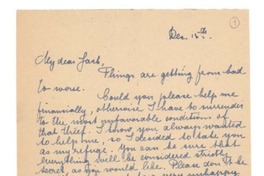 1
Dec. 15th.
My dear Jack,
Things are getting from bad
to worse.
Could you please help me
financially, otherwise I have to surrender
to the most unfavorable conditions of
that thief. I know, you always wanted
to help me, so I decided to take you
as my refuge. You can be sure that
everything will be considered strictly
secret, as you would like. Please don't be
very unhappy